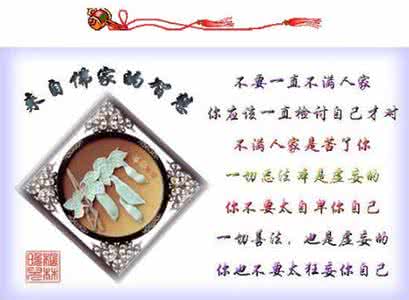 来自佛家的智慧
不要一直不满人家
你应该一直检讨自己才对
不满人家是苦了你
一切恶法本是虚妄的
你不要太自卑你自己
一切善法，也是虚妄的
你也不要太狂妄你自己